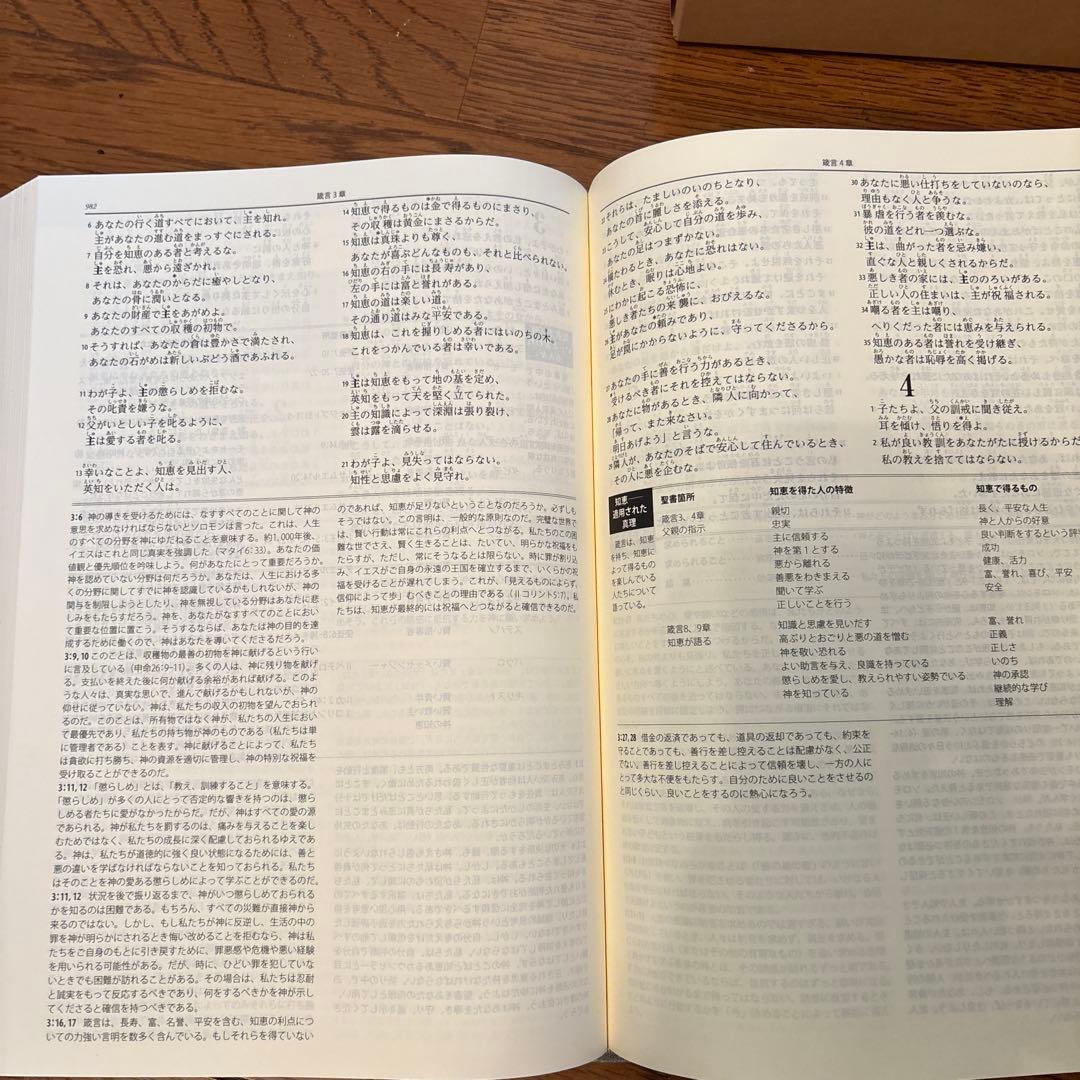 982
箴言 3 章
6 あなたの行く道すべてにおいて、主を知れ。
主があなたの進む道をまっすぐにされる。
7 自分を知恵のある者と考えるな。
主を恐れ、悪から遠ざかれ。
8 それは、あなたのからだに癒やしとなり、
あなたの骨に潤いとなる。
9 あなたの財産で主をあがめよ。
あなたのすべての収穫の初物で。
10 そうすれば、あなたの倉は豊かさで満たされ、
あなたの石がめは新しいぶどう酒であふれる。
11 わが子よ、主の懲らしめを拒むな。
その叱責を嫌うな。
12 父がいとしい子を叱るように、
主は愛する者を叱る。
13 幸いなことよ、知恵を見出す人、
英知をいただく人は。
14 知恵で得るものは金で得るものにまさり、
その収穫は黄金にまさるからだ。
15 知恵は真珠よりも尊く、
あなたが喜ぶどんなものも、それと比べられない。
16 知恵の右の手には長寿があり、
左の手には富と誉れがある。
17 知恵の道は楽しい道。
その通り道はみな平安である。
18 知恵は、これを握りしめる者にはいのちの木。
これをつかんでいる者は幸いである。
19 主は知恵をもって地の基を定め、
英知をもって天を堅く立てられた。
20 主の知識によって深淵は張り裂け、
雲は露を滴らせる。
21 わが子よ、見失ってはならない。
知性と思慮をよく見守れ。
3:6 神の導きを受けるためには、なすすべてのことに関して神の
意思を求めなければならないとソロモンは言った。これは、人生
のすべての分野を神にゆだねることを意味する。約1,000年後、
イエスはこれと同じ真実を強調した（マタイ6:33）。あなたの価
値観と優先順位を吟味しよう。何があなたにとって重要だろうか。
神を認めていない分野は何だろうか。あなたは、人生における多
くの分野に関してすでに神を認識しているかもしれないが、神の
関与を制限しようとしたり、神を無視している分野はあなたに悲
しみをもたらすだろう。神を、あなたがなすすべてのことにおい
て重要な位置に置こう。そうするならば、あなたは神の目的を達
成するために働くので、神はあなたを導いてくださるだろう。
3:9, 10 このことは、収穫物の最善の初物を神に献げるという行い
に言及している（申命26:9–11）。多くの人は、神に残り物を献げ
る。支払いを終えた後に何か献げる余裕があれば献げる。このよ
うな人々は、真実な思いで、進んで献げるかもしれないが、神の
仰せに従っていない。神は、私たちの収入の初物を望んでおられ
るのだ。このことは、所有物ではなく神が、私たちの人生におい
て最優先であり、私たちの持ち物が神のものである（私たちは単
に管理者である）ことを表す。神に献げることによって、私たち
は貪欲に打ち勝ち、神の資源を適切に管理し、神の特別な祝福を
受け取ることができるのだ。
3:11, 12 「懲らしめ」とは、「教え、訓練すること」を意味する。
「懲らしめ」が多くの人にとって否定的な響きを持つのは、懲ら
しめる者たちに愛がなかったからだ。だが、神はすべての愛の源
であられる。神が私たちを罰するのは、痛みを与えることを楽し
むためではなく、私たちの成長に深く配慮しておられるゆえであ
る。神は、私たちが道徳的に強く良い状態になるためには、善と
悪の違いを学ばなければならないことを知っておられる。私たち
はそのことを神の愛ある懲らしめによって学ぶことができるのだ。
3:11, 12 状況を後で振り返るまで、神がいつ懲らしめておられる
かを知るのは困難である。もちろん、すべての災難が直接神から
来るのではない。しかし、もし私たちが神に反逆し、生活の中の
罪を神が明らかにされるとき悔い改めることを拒むなら、神は私
たちをご自身のもとに引き戻すために、罪悪感や危機や悪い経験
を用いられる可能性がある。だが、時に、ひどい罪を犯していな
いときでも困難が訪れることがある。その場合は、私たちは忍耐
と誠実をもって反応するべきであり、何をするべきかを神が示し
てくださると確信を持つべきである。
3:16, 17 箴言は、長寿、富、名誉、平安を含む、知恵の利点につ
いての力強い言明を数多く含んでいる。もしそれらを得ていない
のであれば、知恵が足りないということなのだろうか。必ずしも
そうではない。この言明は、一般的な原則なのだ。完璧な世界で
は、賢い行動は常にこれらの利点へとつながる。私たちのこの困
難な世でさえ、賢く生きることは、たいてい、明らかな祝福をも
たらすが、ただし、常にそうなるとは限らない。時に罪が割り込
み、イエスがご自身の永遠の王国を確立するまで、いくらかの祝
福を受けることが遅れてしまう。これが、「見えるものによらず、
信仰によって歩」むべきことの理由である（Ⅱコリント5:7）。私
たちは、知恵が最終的には祝福へとつながると確信できるのだ。
箴言 4 章
22 それらは、たましいのいのちとなり、
あなたの首に麗しさを添える。
23 こうして、安心して自分の道を歩み、
あなたの足はつまずかない。
横たわるとき、あなたに恐れはない。
休むとき、眠りは心地よい。
にわかに起こる恐怖に、
悪しき者たちの来襲に、おびえるな。
26 主があなたの頼みであり、
足が罠にかからないように、守ってくださるから。
27 あなたの手に善を行う力があるとき、
受けるべき者にそれを控えてはならない。
28 あなたに物があるとき、隣人に向かって、
「帰って、また来なさい。
明日あげよう」と言うな。
29 隣人が、あなたのそばで安心して住んでいるとき、
その人に悪を企むな。
30 あなたに悪い仕打ちをしていないのなら、
理由もなく人と争うな。
31 暴虐を行う者を羨むな。
彼の道をどれ一つ選ぶな。
32 主は、曲がった者を忌み嫌い、
直ぐな人と親しくされるからだ。
33 悪しき者の家には、主ののろいがある。
正しい人の住まいは、主が祝福される。
34 嘲る者を主は嘲り、
へりくだった者には恵みを与えられる。
35 知恵のある者は誉れを受け継ぎ、
愚かな者は恥辱を高く掲げる。
4
1 子たちよ、父の訓戒に聞き従え。
耳を傾け、悟りを得よ。
2 私が良い教訓をあなたがたに授けるからだ
私の教えを捨ててはならない。
知恵——
適用された
真理
箴言は、知恵
を持ち、知恵に
よって得るもの
を楽しんでいる
人たちについて
語っている。
聖書箇所
知恵を得た人の特徴
知恵で得るもの
箴言3、4章
父親の指示
親切
忠実
主に信頼する
神を第1とする
悪から離れる
善悪をわきまえる
聞いて学ぶ
正しいことを行う
長く、平安な人生
神と人からの好意
良い判断をするという評
成功
健康、活力
富、誉れ、喜び、平安
安全
箴言8、9章
知恵が語る
知識と思慮を見いだす
高ぶりとおごりと悪の道を憎む
神を敬い恐れる
よい助言を与え、良識を持っている
懲らしめを愛し、教えられやすい姿勢でいる
神を知っている
富、誉れ
正義
正しさ
いのち
神の承認
継続的な学び
理解
3:27, 28 借金の返済であっても、道具の返却であっても、約束を
守ることであっても、善行を差し控えることは配慮がなく、公正
でない。善行を差し控えることによって信頼を壊し、一方の人に
とって多大な不便をもたらす。自分のために良いことをさせるの
と同じくらい、良いことをするのに熱心になろう。